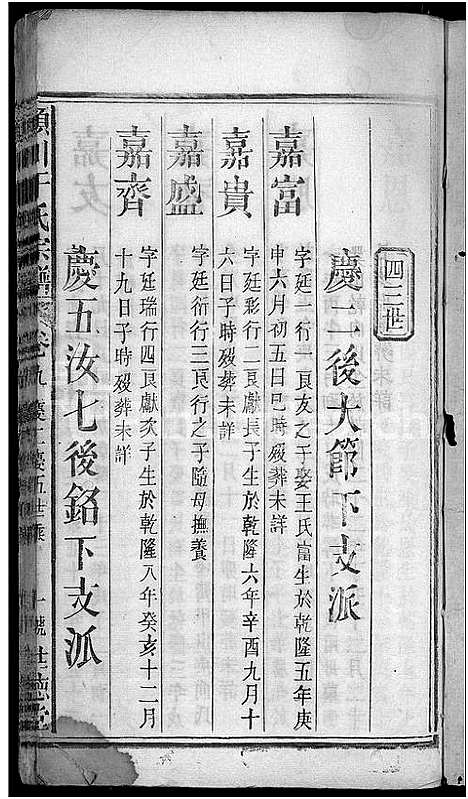 四三世
慶二後大節下支派
嘉富
字廷二行一良友之子娶王氏富生於乾隆五年庚
申六月初五日巳時歿葬未詳
嘉貴
字廷彩行二良獻長子生於乾隆六年辛酉九月十
六日子時歿葬未詳
嘉盛
字廷衍行三良行之子隨母撫養
嘉齊
字廷瑞行四良獻次子生於乾隆八年癸亥十二月
十九日子時歿葬未詳
慶五汝七後銘下支派
川于氏宗譜 卷九 慶二慶五世系 一號 世德堂